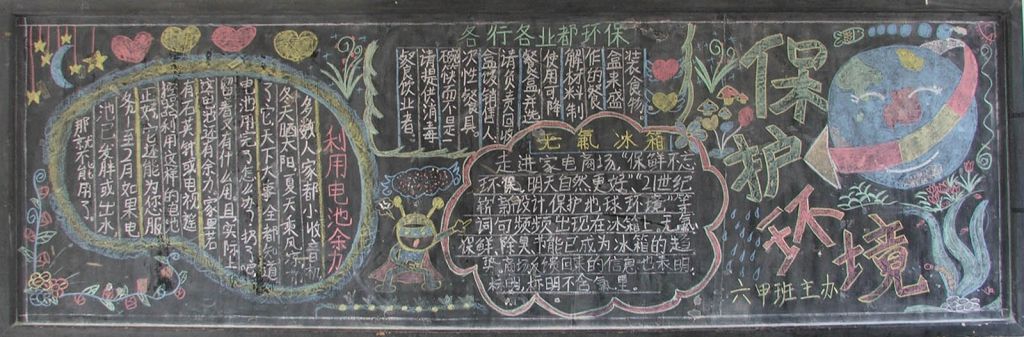 保护环境
六甲班主办
各行各业都环保
装食食物。
盒来盛
作的餐
解材料制
使用可降
餐盒并选
请负责回收
盒饭销售人
次性餐具
碗筷而不是
请提供消毒
餐饮业者
无氟冰箱
走进家电商场"保鲜不忘
环保、明天自然更好","21世纪
新设计保护地球环境"等
词句频频出现在冰箱上,无氟
保鲜除臭节能已成为冰箱的
势。商场反馈回来的信息也表明
标明不含氟里。
利用电池余力
多数人家都小收音机
冬天晒太阳,夏天乘风
了它,天下大事全都知道
电池用完了怎么办?扔了吧
留着又有什么用?且实际上
这电池还有余力。家里若
有石英钟或电视遥
控器,利用这样的电池
正好。它还能为您服
务一至2月。如果电
池已发胖或出水
那就不能用了。